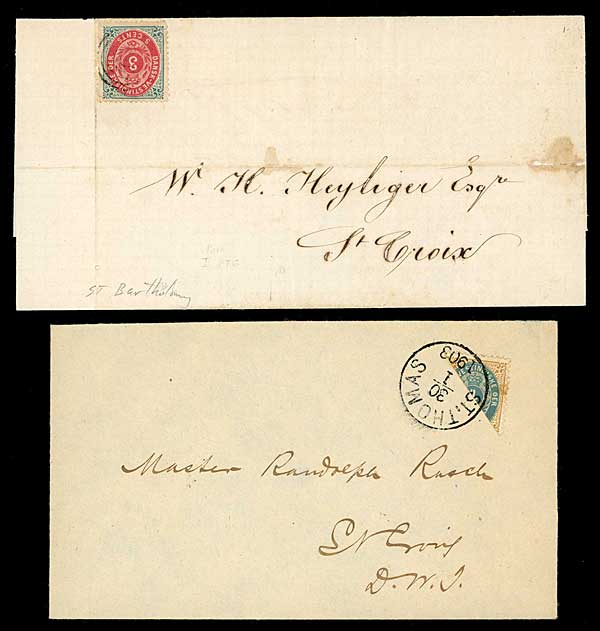 DANSK-VESTINDISKE ØER
3
3 CENTS
W. H. Heyliger Esqre
St Croix
I PTG
ST Bartholomy
ST. THOMAS
30
1
1903
Master Randolph Rasch
St Croix
D. W. I.